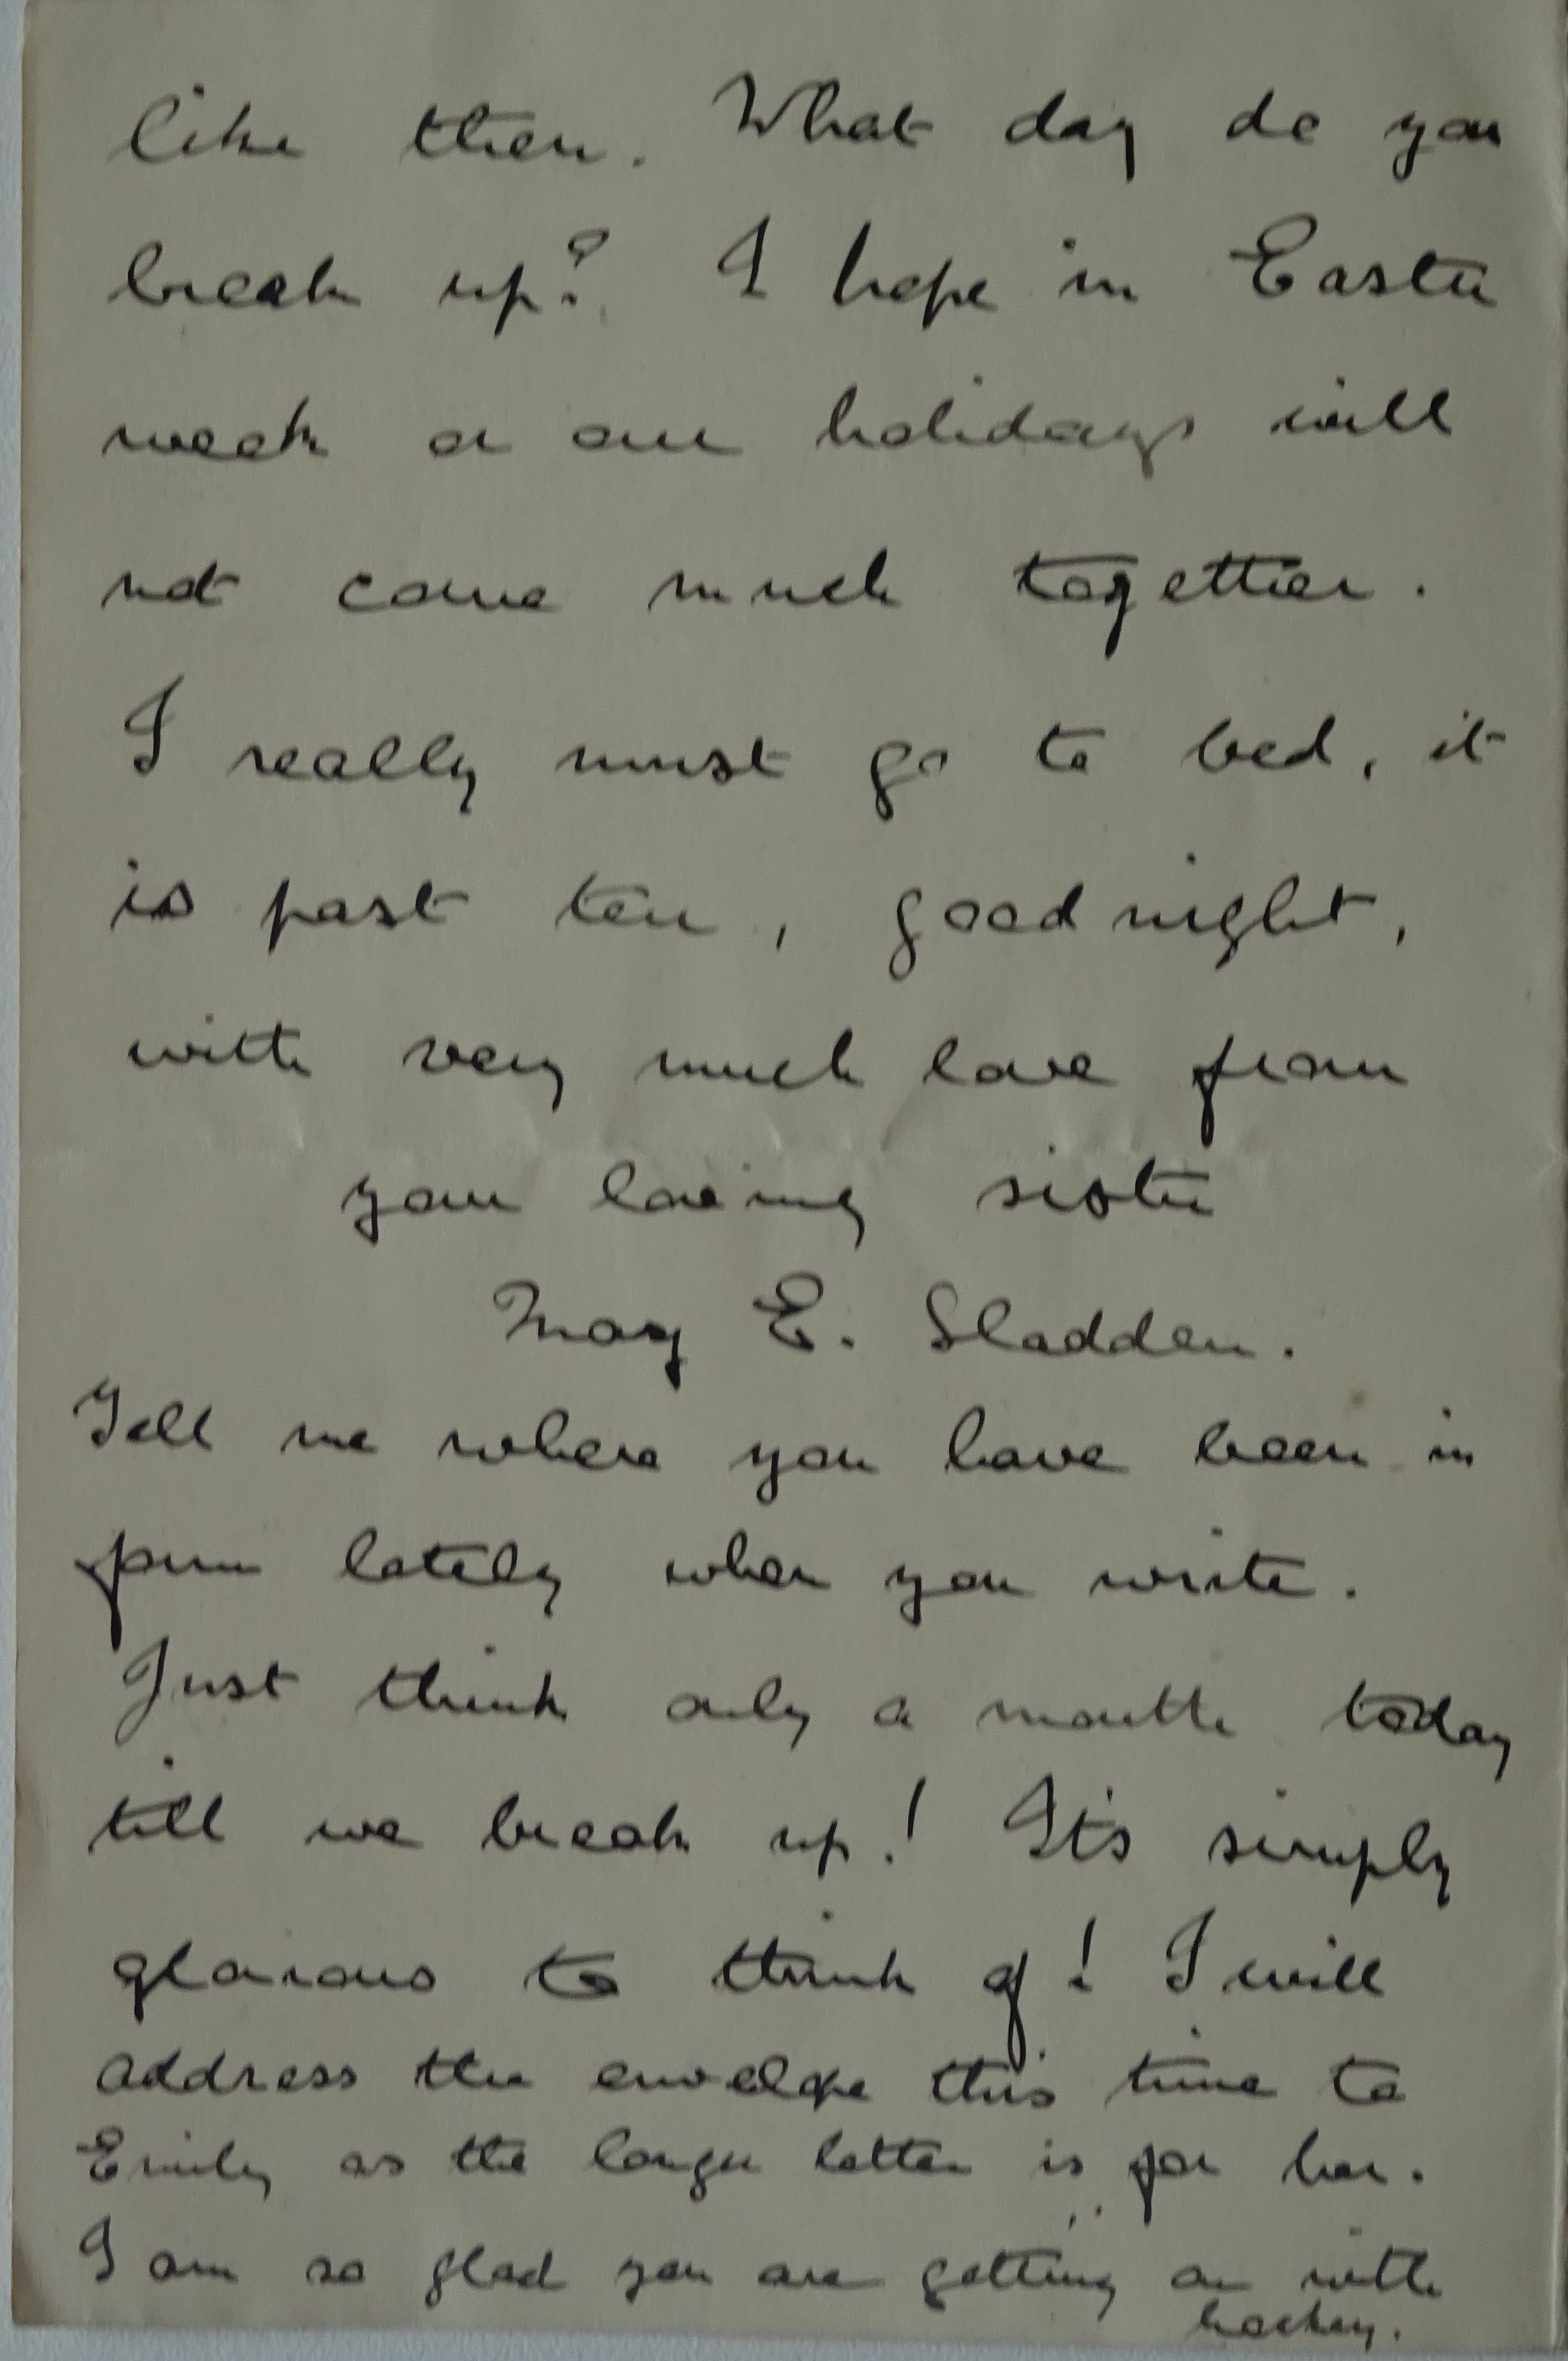 like then. What day do you
break up? I hope in Easter
week or our holidays will
not come much together.
I really must go to bed, it
is past ten, good night,
with very much love from
your loving sister
May E. Sladden.
Tell me where you have been in
form lately when you write.
Just think only a month today
till we break up! It's simply
glorious to think of! I will
address the envelope this time to
Emily as the longer letter is for her.
I am so glad you are getting on with
hockey.